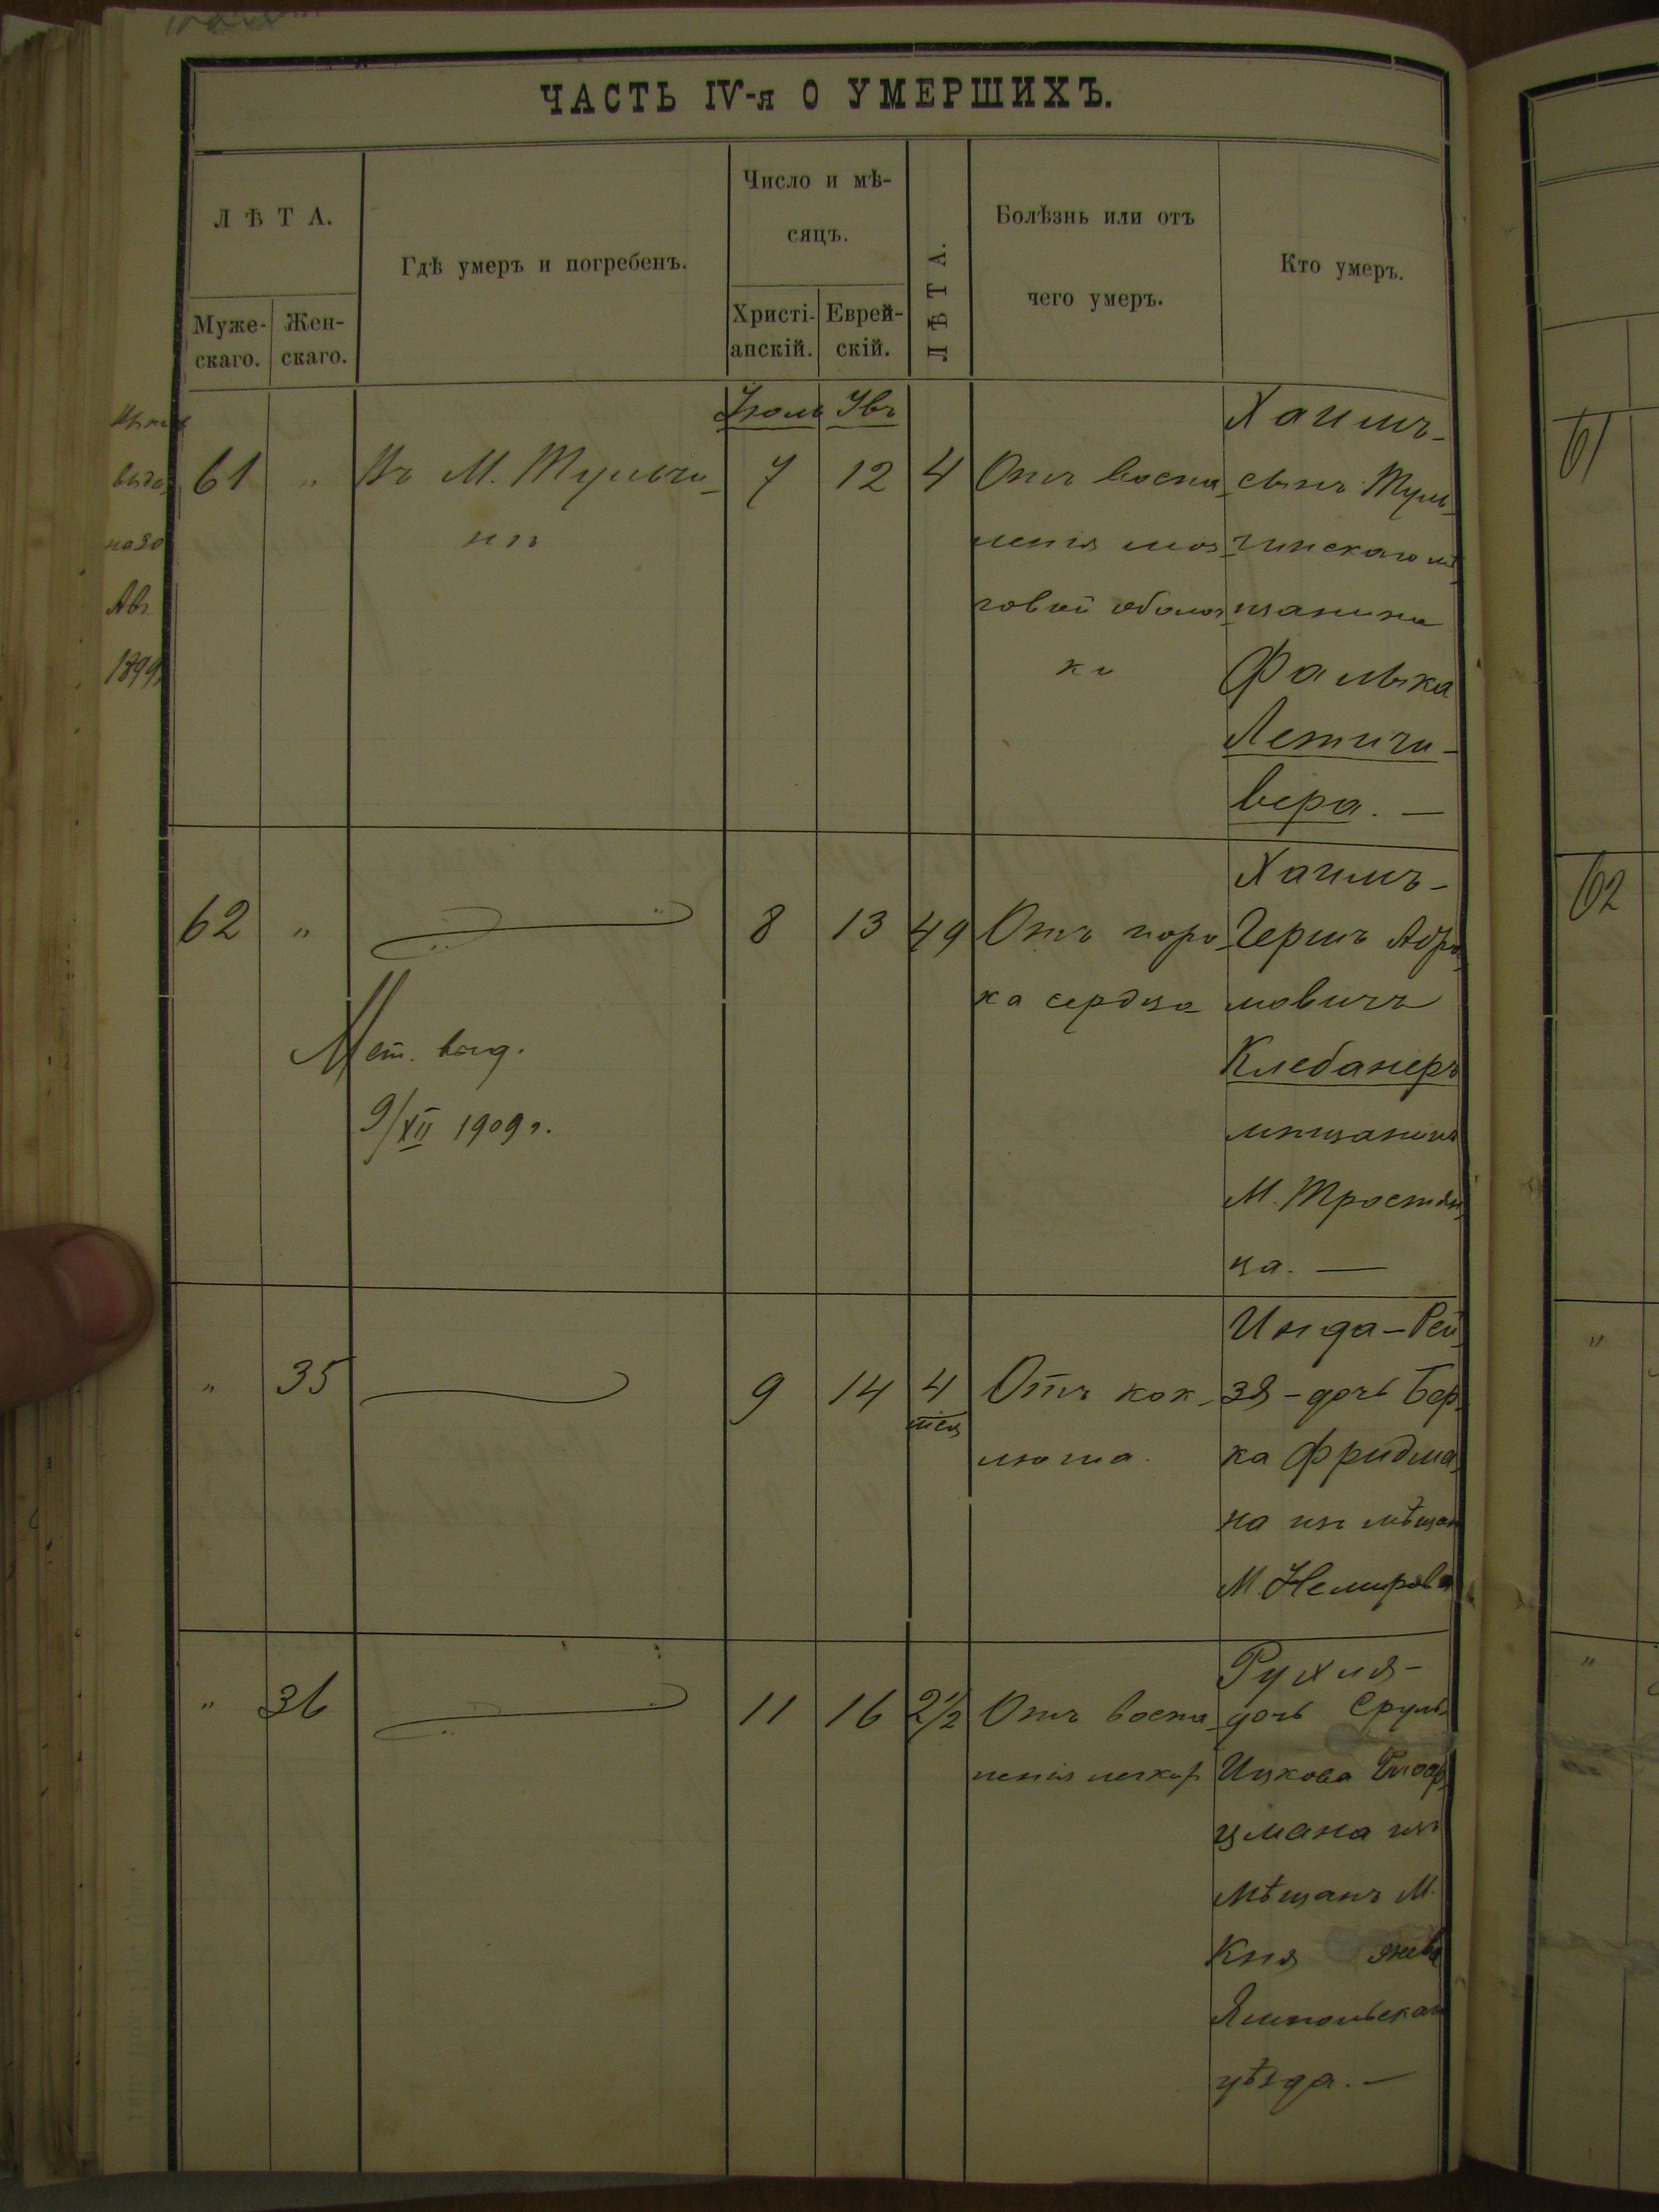 ЧАСТЬ IV-я О УМЕРШИХЪ.
ЛѢТА.
Муже-
скаго.
Жен-
скаго.
Гдѣ умеръ и погребенъ.
Число и мѣ-
сяцъ.
Христі-
анскій.
Еврей-
скій.
ЛѢТА.
Болѣзнь или отъ
чего умеръ.
Кто умеръ.
выда
на 30
Авг.
1899
Іюль Увъ
61 " Въ М. Тульчи-
нѣ
7 12 4
Отъ воспа-
ленія моз-
говой оболоч-
ки
Хаимъ-
сынъ Туль-
чинскаго мѣ-
щанина
Фалька
Летичи-
вера. —
62 "
8 13 49
Отъ поро-
ка сердца
Хаимъ-
Гершъ Абра-
мовичъ
Клебанеръ
мѣщанинъ
М. Тростян-
ца. —
Мет. выд.
9/XII 1909 г.
" 35
9 14 4
мѣся
Отъ кок-
люша.
Инда-Рей-
зя-дочь Бер-
ка Фридма-
на изъ мѣщан
М. Немирова
" 36
11 16 2½
Отъ воспа-
ленія легких
Рухля-
дочь Сруль-
Ицкова
цмана изъ
мѣщанъ М.
Кня жева
Ямпольскаго
уѣзда. —
61
62
"
"